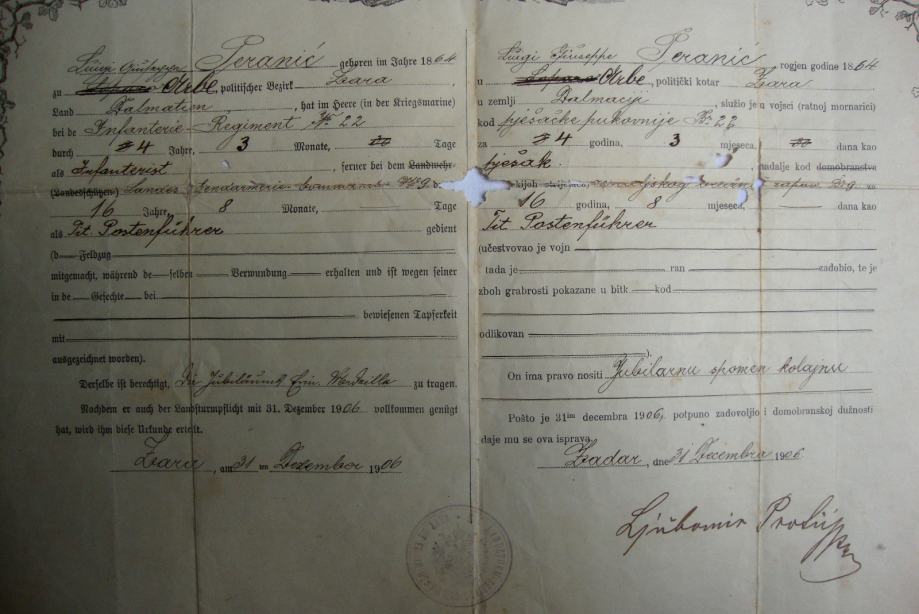 Luigi Giuseppe Peranić geboren im Jahre 1864
zu Arbe, politischer Bezirk Zara
Land Dalmatien, hat im Heere (in der Kriegsmarine)
bei de Infanterie-Regiment No 22
durch 4 Jahre, 3 Monate, Tage
als Infanterist, ferner bei dem Landwehr-
(Landesschützen) Landes Gendarmerie Commando No 9
16 Jahre, 8 Monate, Tage
als Tit. Postenführer gedient
(d Feldzug
mitgemacht, während de selben Verwundung erhalten und ist wegen seiner
in de Gefechte bei
bewiesenen Tapferkeit
mit
ausgezeichnet worden).
Derselbe ist berechtigt, Die Jubiläums Erin. Medaille zu tragen.
Nachdem er auch der Landsturmpflicht mit 31. Dezember 1906 vollkommen genügt
hat, wird ihm diese Urkunde erteilt.
Zara, am 31 im Dezember 1906
Luigi Giuseppe Peranić rogjen godine 1864
u Arbe, politički kotar Zara
u zemlji Dalmaciji, služio je u vojsci (ratnoj mornarici)
kod pješačke pukovnije Br. 22
za 4 godina, 3 mjeseca, dana kao
pješak, nadalje kod domobranstva
16 godina, 8 mjeseca, dana kao
Tit Postenführer
(učestvovao je vojn
tada je ran zadobio, te je
zboh grabrosti pokazane u bitk kod
odlikovan
).
On ima pravo nositi Jubilarnu spomen kolajnu
Pošto je 31im decembra 1906, potpuno zadovoljio i domobranskoj dužnosti
daje mu se ova isprava.
Zadar, dne 31 Decembra 1906
Ljubomir